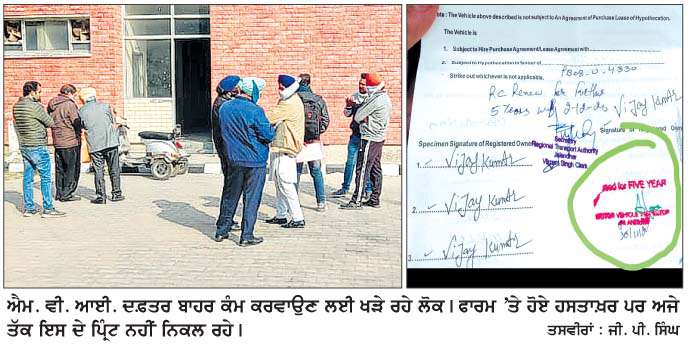 Note: The Vehicle above described is not subject to An Agreement of Purchase Lease of Hypothecation.
The Vehicle is
1. Subject to Hire Purchase Agreement/Lease Agreement with
2. Subject to Hypothecation in favour of
Strike out whichever is not applicable.
PB08-U-4330
RC Renew for further
5 years w.e.f
Vijay Kumar
Signature of Registered Owner
Specimen Signature of Registered Owner
Secretary
Regional Transport Authority
Jalandhar
1. Vijay Kumar
2. Vijay Kumar
3. Vijay Kumar
for FIVE YEAR
ਐਮ. ਵੀ. ਆਈ. ਦਫ਼ਤਰ ਬਾਹਰ ਕੰਮ ਕਰਵਾਉਣ ਲਈ ਖੜੇ ਰਹੇ ਲੋਕ। ਫਾਰਮ 'ਤੇ ਹੋਏ ਹਸਤਾਖ਼ਰ ਪਰ ਅਜੇ
ਤੱਕ ਇਸ ਦੇ ਪ੍ਰਿੰਟ ਨਹੀਂ ਨਿਕਲ ਰਹੇ।
ਤਸਵੀਰਾਂ : ਜੀ. ਪੀ. ਸਿੰਘ